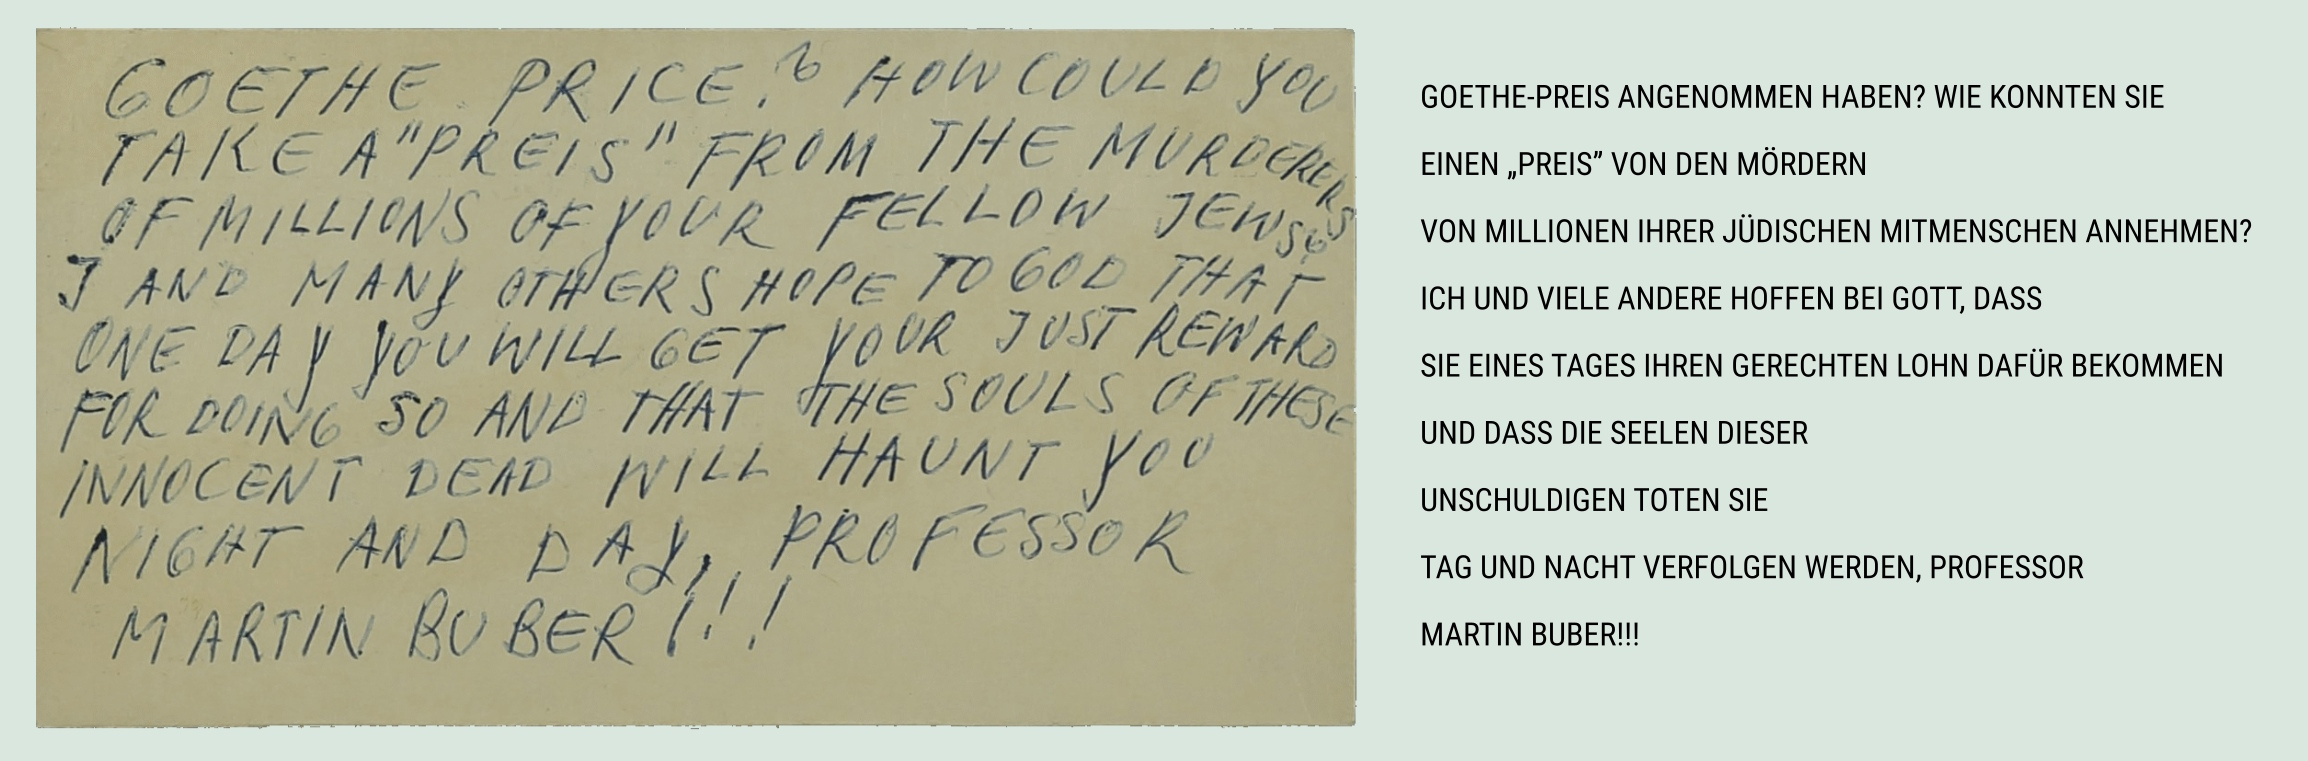 GOETHE PRICE.? HOW COULD YOU
TAKE A "PREIS" FROM THE MURDERERS
OF MILLIONS OF YOUR FELLOW JEWS?
I AND MANY OTHERS HOPE TO GOD THAT
ONE DAY YOU WILL GET YOUR JUST REWARD
FOR DOING SO AND THAT THE SOULS OF THESE
INNOCENT DEAD WILL HAUNT YOU
NIGHT AND DAY, PROFESSOR
MARTIN BUBER!!!
GOETHE-PREIS ANGENOMMEN HABEN? WIE KONNTEN SIE
EINEN „PREIS” VON DEN MÖRDERN
VON MILLIONEN IHRER JÜDISCHEN MITMENSCHEN ANNEHMEN?
ICH UND VIELE ANDERE HOFFEN BEI GOTT, DASS
SIE EINES TAGES IHREN GERECHTEN LOHN DAFÜR BEKOMMEN
UND DASS DIE SEELEN DIESER
UNSCHULDIGEN TOTEN SIE
TAG UND NACHT VERFOLGEN WERDEN, PROFESSOR
MARTIN BUBER!!!